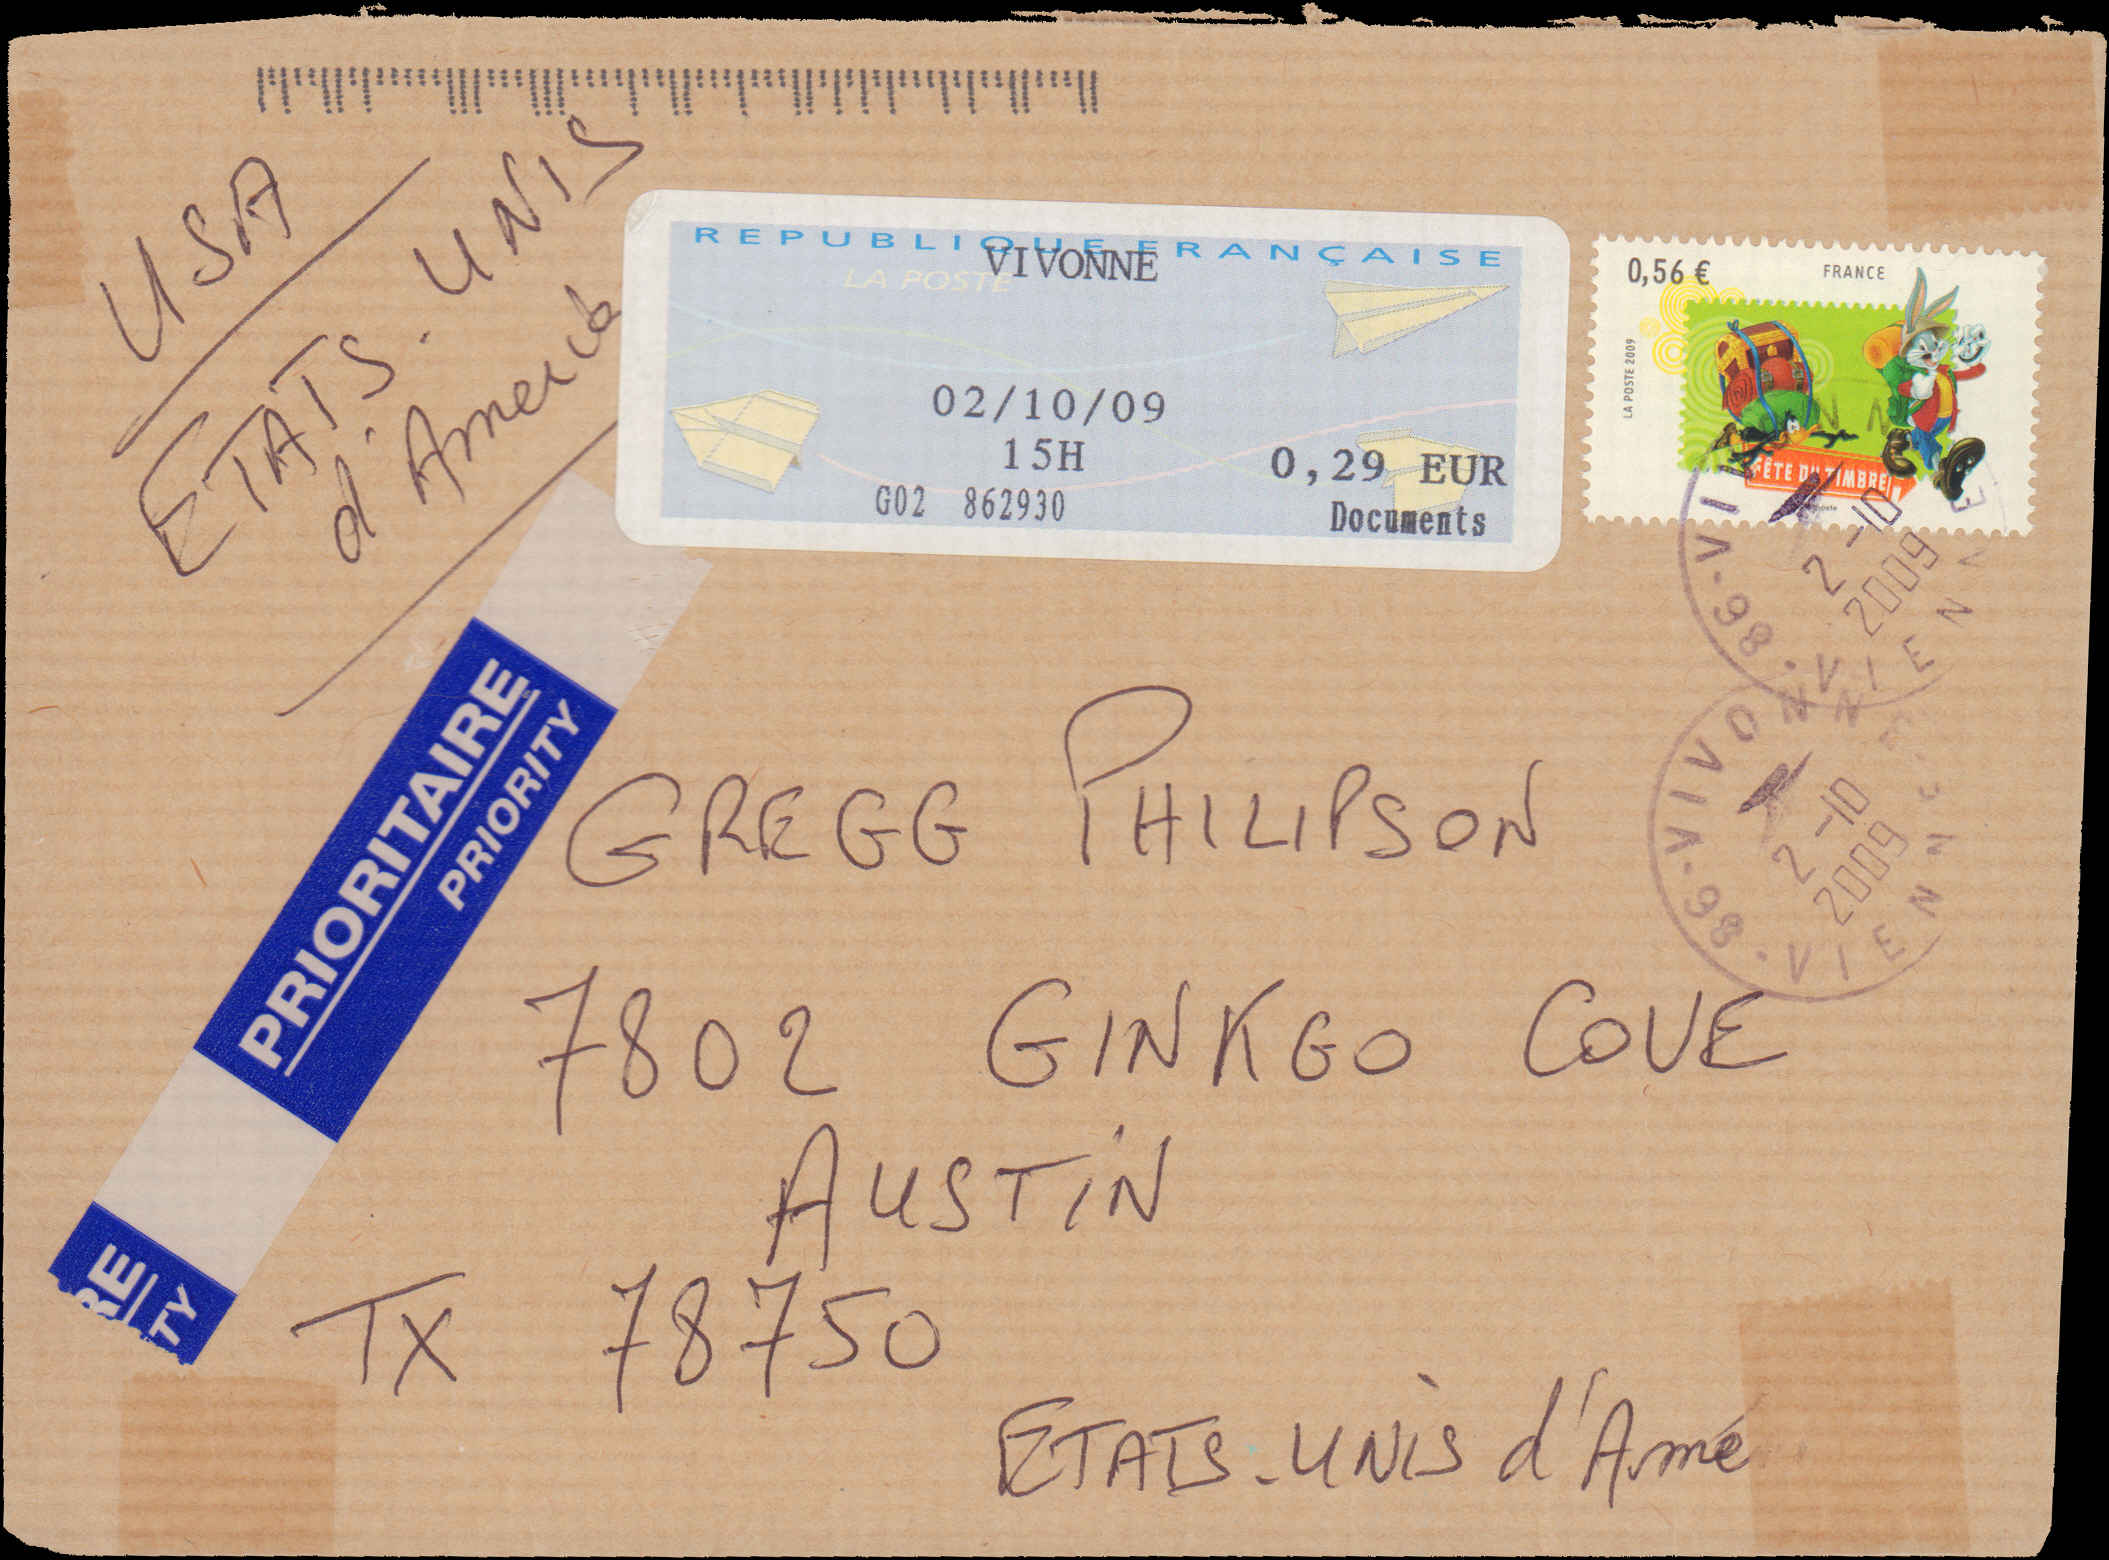 USA
ETATS.UNIS
d'Americ
REPUBLIQUE FRANÇAISE
VIVONNE
LA POSTE
02/10/09
15H
0,29 EUR
G02 862930
Documents
0,56 €
FRANCE
LA POSTE 2009
FÊTE DU TIMBRE
2-10
2009
86-VIVONNE
VIENNE
PRIORITAIRE
PRIORITY
RE
TY
VIVONNE
2-10
2009
86
VIENNE
GREGG PHILIPSON
7802 GINKGO COVE
AUSTIN
TX 78750
ETATS-UNIS d'Amé